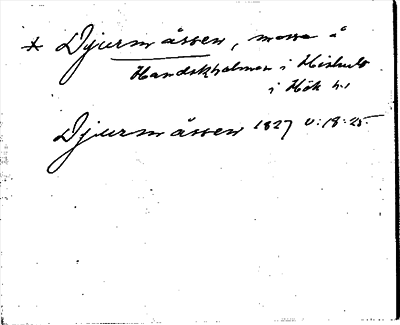 * Djurmåssen, mosse å
Handskholmen i Hishult
i Hök h.
Djurmåssen 1827 U:18:25